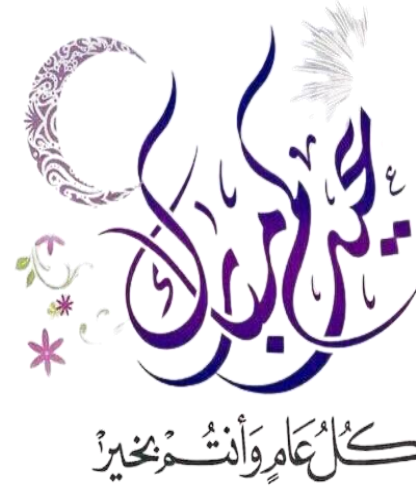 عيد مبارك
كُلُ عَامٍ وَأَنتُمْ بِخَيرْ